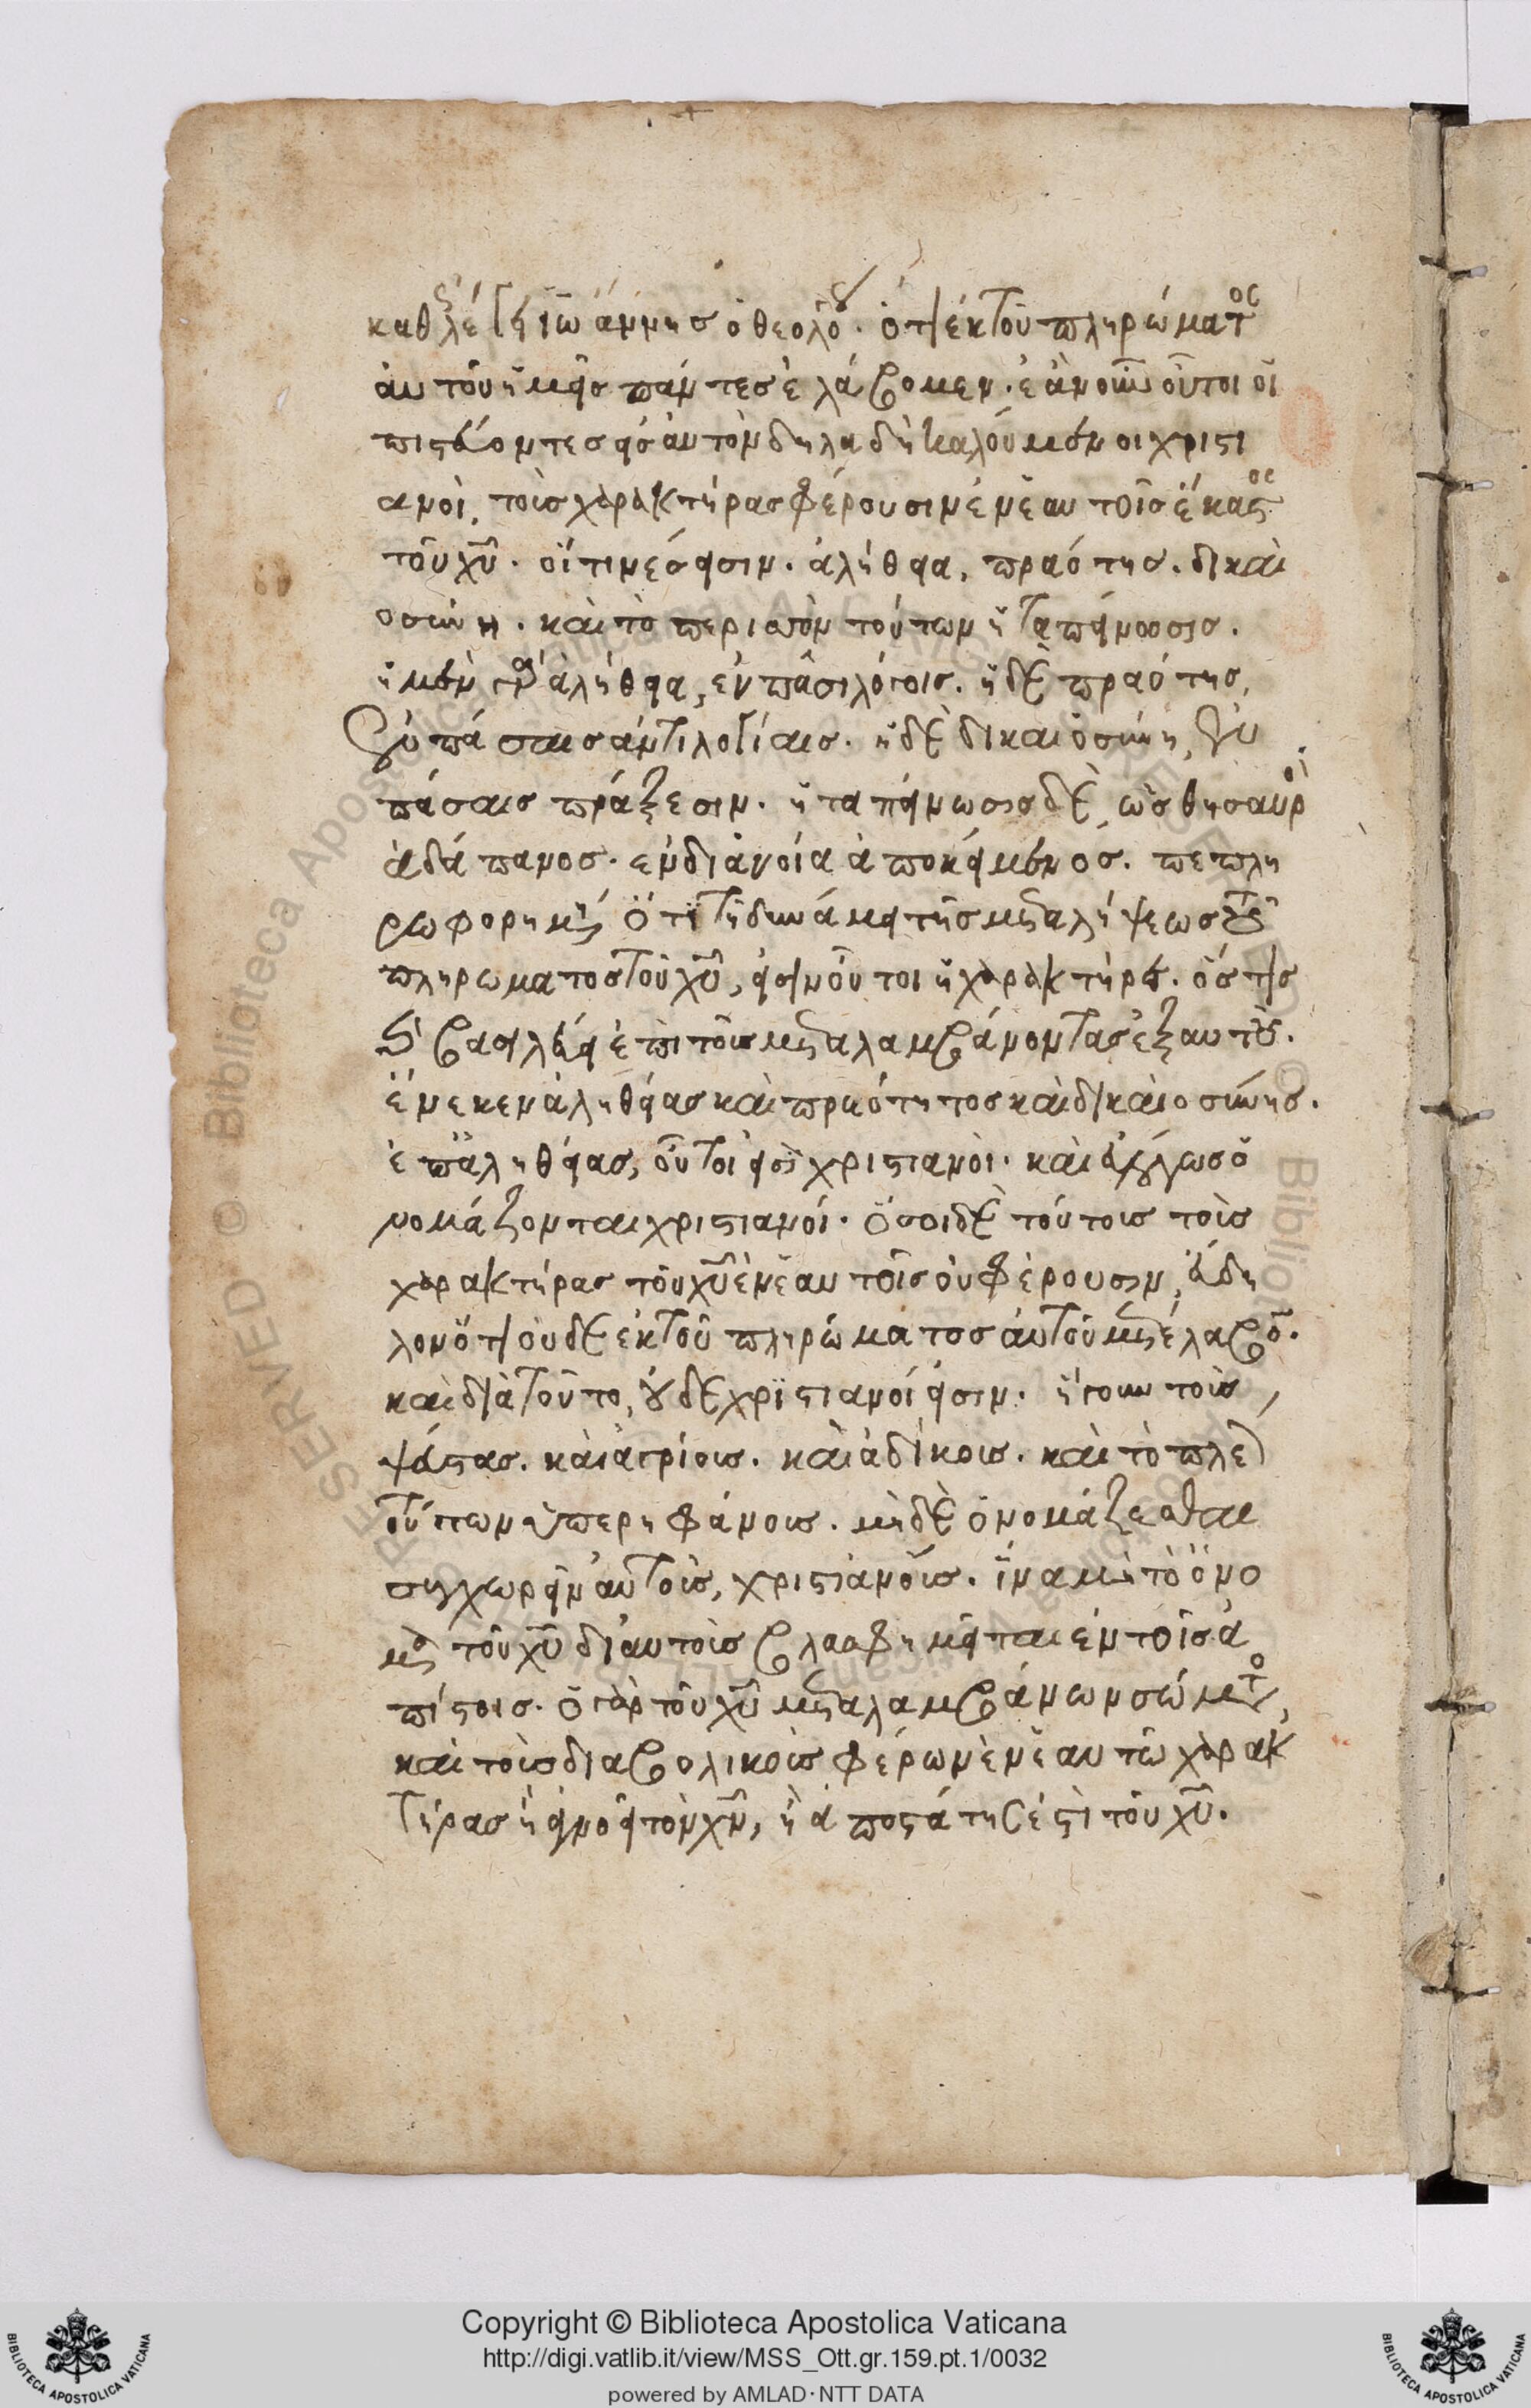 καθὼς λέγει ἰωάννησ ὁ θεολόγος. ὅτι ἐκ τοῦ πληρώματος
αὐτοῦ ἡμεῖσ πάντεσ ἐλάβομεν. ἐὰν οὖν οὗτοι οἱ
πιστεύοντεσ εἰσ αὐτὸν δηλαδὴ καλούμενοι χριστι
ανοὶ, τοὺσ χαρακτήρασ φέρουσιν ἐν ἑαυτοῖσ ἕκαστος
τοῦ χυ. οἵτινέσ εἰσιν. ἀλήθεια, πραότησ. δικαι
οσύνη. καὶ τὸ περισσὸν τούτων ἡ ταπείνωσισ.
ἡ μὲν γὰρ ἀλήθεια, ἐν πᾶσι λόγοισ. ἡ δὲ πραότησ,
ἐν πάσαισ ἀντιλογίαισ. ἡ δὲ δικαιοσύνη, ἐν
πάσαισ πράξεσιν. ἡ ταπείνωσισ δὲ, ὡσ θησαυρὸσ
ἀδάπανοσ. ἐν διανοία ἀποκείμενοσ. πεπλη
ρωφορημένοι ὅτι τῆ δυνάμει τῆσ μεταλήψεωσ τοῦ
πληρωματοσ τοῦ χυ, εἰσὶν οὗτοι οἱ χαρακτῆρεσ. ὅστισ
βασιλεύει ἐπὶ τοὺσ μεταλαμβάνοντασ ἐξ αυτοῦ.
ἕνεκεν ἀληθείασ καὶ πραότητοσ καὶ δικαιοσύνησ.
ἐπ ἀληθείασ, οὗτοι εἰσὶ χριστιανοὶ. καὶ εὐλόγωσ ὀ
νομάζονται χριστιανοί. ὅσοι δὲ τούτουσ τοὺσ
χαρακτήρασ τοῦ χυ ἐν ἑαυτοῖσ οὐ φέρουσιν, εὔδη
λον ὅτι οὐδὲ ἐκ τοῦ πληρώματοσ αὐτοῦ μετέλαβον.
καὶ διὰ τοῦτο, οὐδὲ χριστιανοί εἰσιν. ἤγουν τοὺσ
ψεύστασ. καὶ ἀγρίουσ. καὶ ἀδίκουσ. καὶ τὸ πλέον
τούτων ὑπερηφάνουσ. μὴ δὲ ὀνομάζεσθαι
συγχωρεῖν αὐτοὺσ, χριστιανοὺσ. ἵνα μὴ τὸ ὄνο
μα τοῦ χυ δι αυτοὺσ βλασφημεῖται ἐν τοῖσ ἀ
πίστοισ. ὁ γὰρ τοῦ χυ μεταλαμβάνων σώματος,
καὶ τοὺσ διαβολικοὺσ φέρων ἐν ἑαυτῶ χαρακ
τήρασ ἢ ἀγνοεῖ τὸν χν, ἢ ἀποστάτησ ἐστὶ τοῦ χυ.
Copyright © Biblioteca Apostolica Vaticana
http://digi.vatlib.it/view/MSS_Ott.gr.159.pt.1/0032
powered by AMLAD·NTT DATA